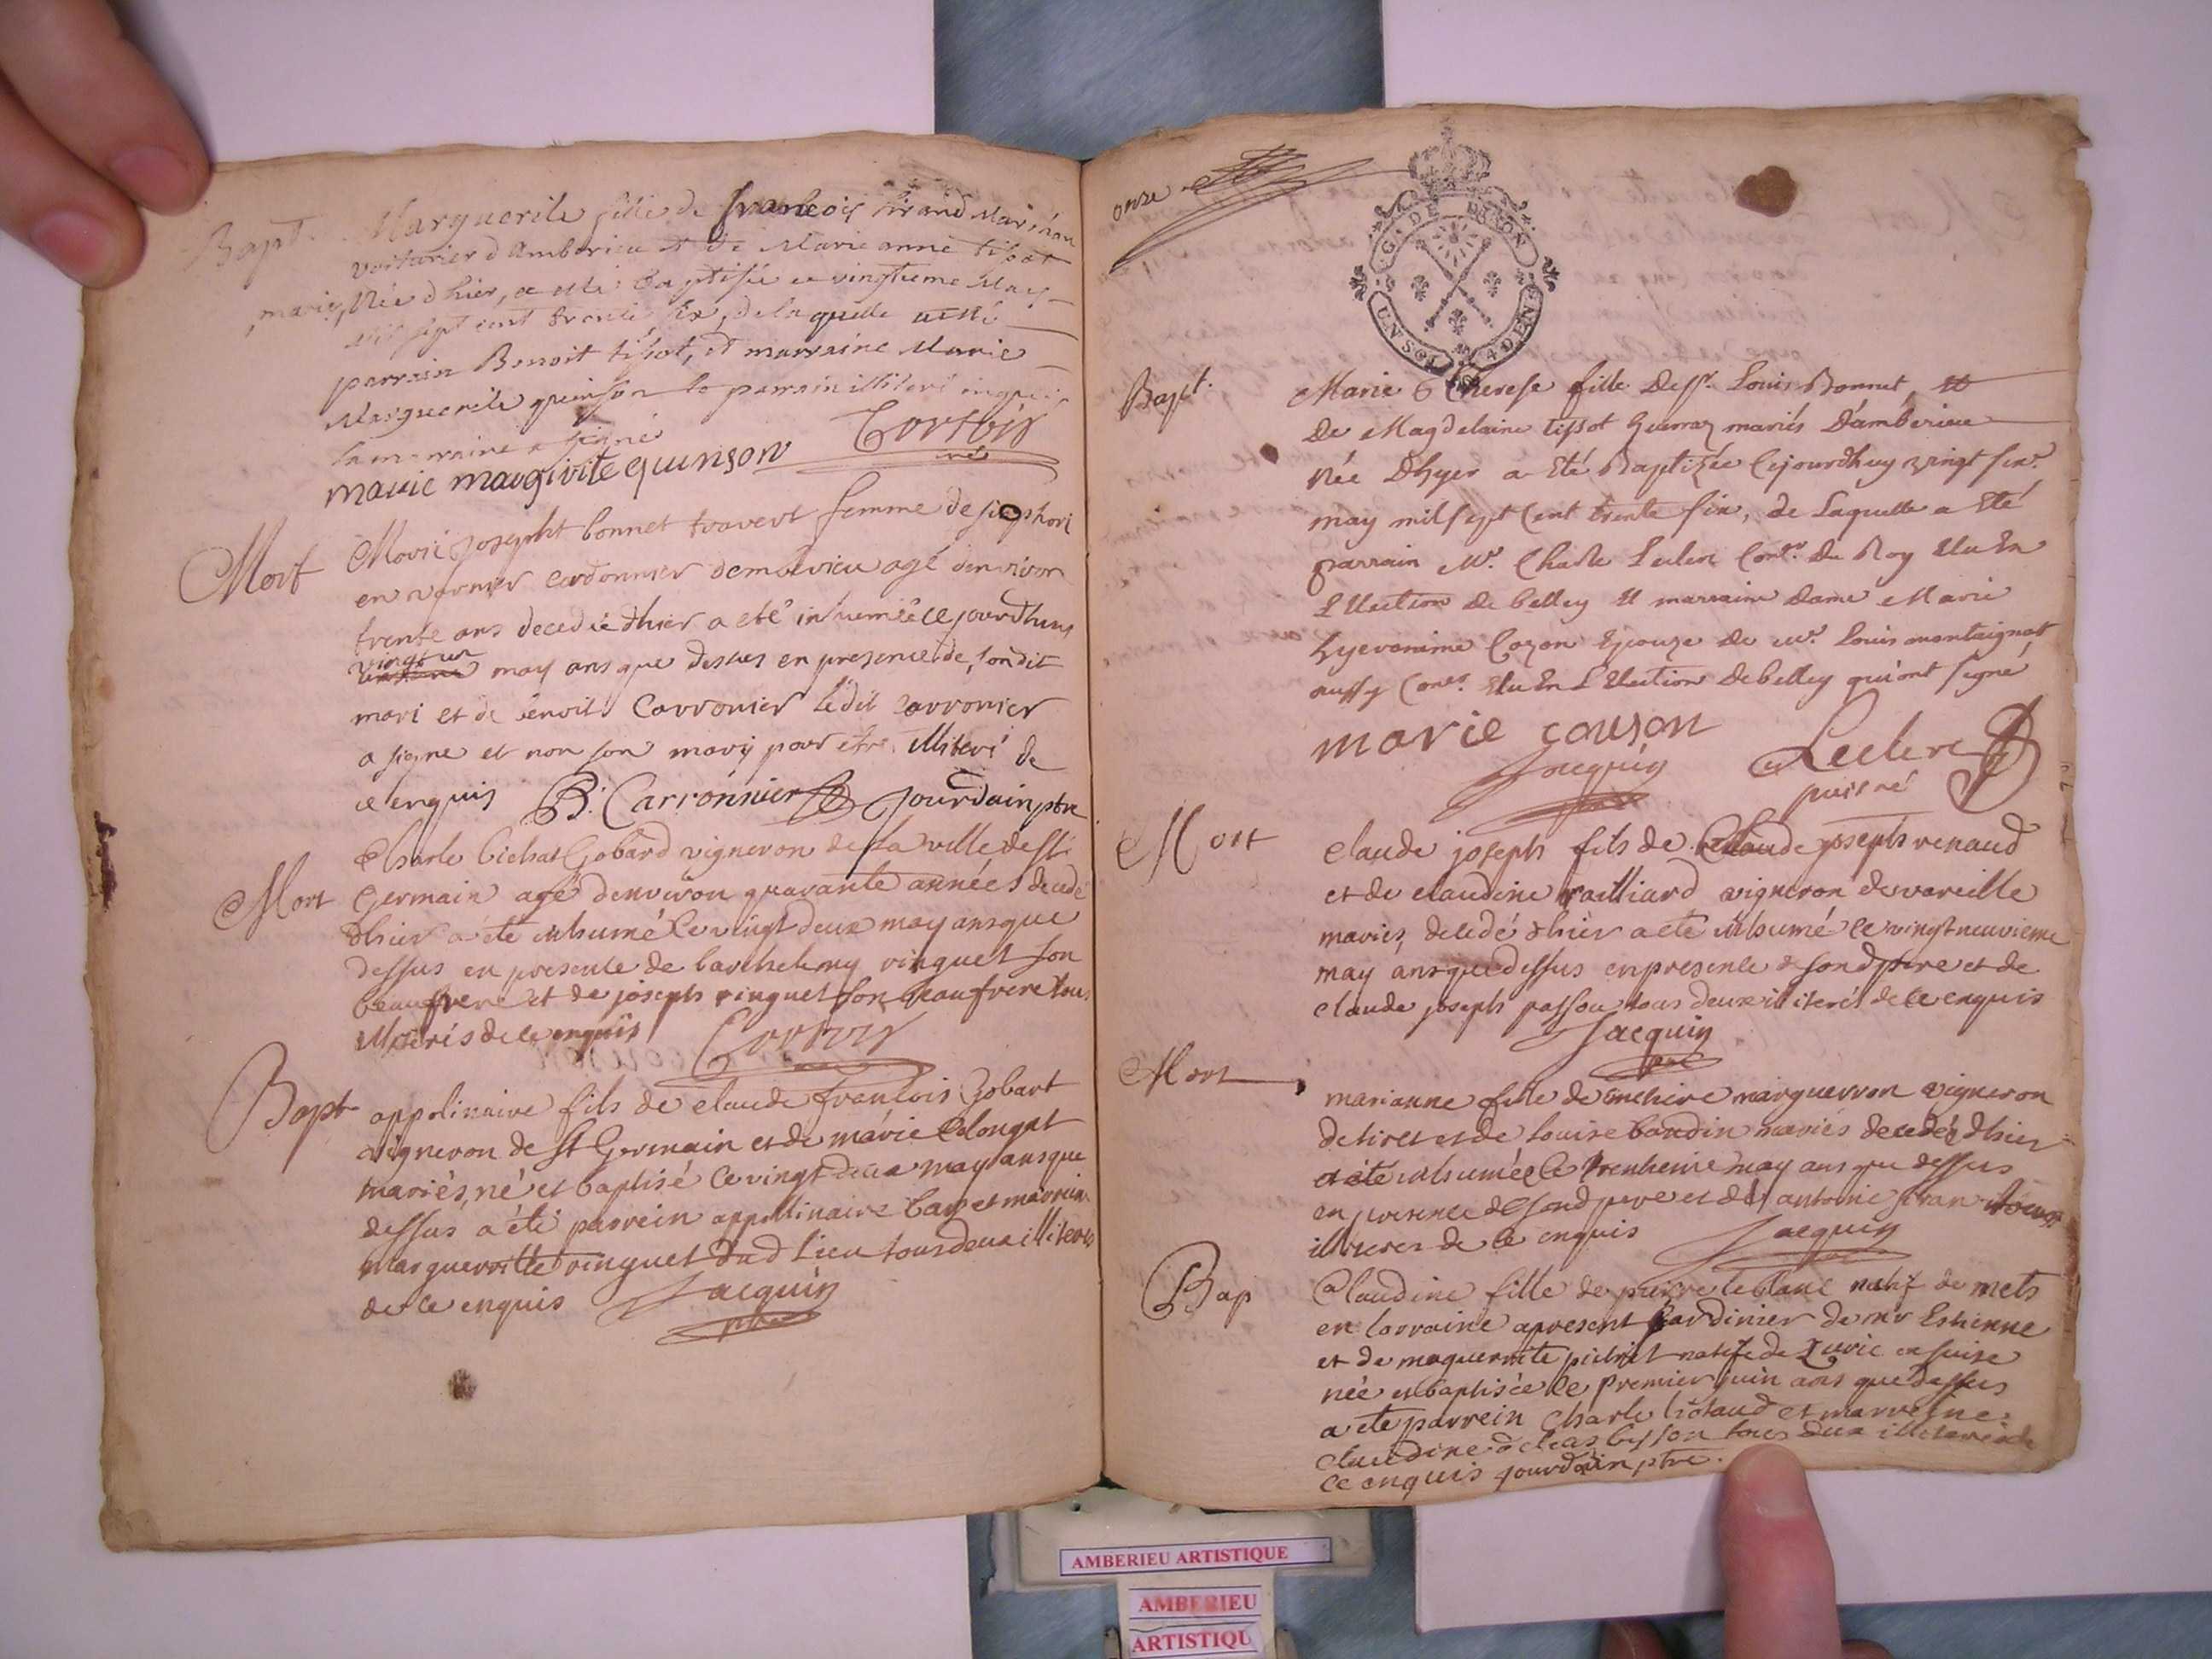 Bapt. Marguerite fille de francois
voiturier d'Amberieu et de Marie anne tissot
mariés, Née d'hier, a esté Baptisée ce vingtieme May
mil sept cent trente six, de laquelle a esté
parrain Benoit tissot, et marraine Marie
Marguerite quinson le parrain illiteré
la marraine a signé
marie margirite quinson
Mort Marie Josepht bonnet travert femme de
en cordonnier dembérieu agé denviron
trente ans decedée dhier a eté inhumée ce jourdhuy
vingt un may ans que dessus en presence de sondit
mari et de benoit Carronier ledit carronier
a signe et non son marÿ pour etre illiteré de
ce enquis B. Carrónnier Jourdain ptre
Charle bichat Gobard vigneron de la ville de st
Mort Germain agé denviron quarante années decedé
dhier a été inhumé le vingt deux may ans que
dessus en presence de barthelemy vinquet son
beaufrere et de joseph vinquet son beaufrere tous
illiterés de ce enquis
Bapt appolinaire fils de claude francois Gobart
vigneron de St Germain et de marie Colongat
mariés, né et baptisé le vingt deux may ans que
dessus, a été parrein appollinaire et marreine
margueritte vinquet dud lieu tous deux illiterés
de ce enquis Jacquin
ptre
onze
G. DE DIJON
UN SOL 4 DEN
Bapt. Marie Therese fille de sr. Louis Bonnet et
De Magdelaine tissot mariés D'ambérieu
Née D'hyer a Eté Baptizée Cejourdhuy vingt six.
may mil sept Cent trente six, de Laquelle a Eté
parrain Mr. Charle Leclerc Conr. Du Roy Elu En
L'Election De belley et marraine dame Marie
hyeronime Cozon Epouze De mr. Louis montaignat
aussy Conr. Elu En L'Election De belley qui ont signé
marie couson
Jacquin Leclerc
puisné
Mort claude joseph fils de Claude joseph renaud
et de claudine railliard vigneron de vareille
mariés, decedé dhier a eté inhumé le vingt neuvieme
may ans que dessus en presence de sond pere et de
claude joseph passou tous deux illiterés de ce enquis
Jacquin
ptre
Mort
marianne fille de marguerron vigneron
de tiret et de louise baudin mariés decedée dhier
a été inhumée le trentieme may ans que dessus
en presence de sond pere et de antoine
illiteres de ce enquis Jacquin
Bap Claudine fille de pierre leblanc natif de mets
en lorraine apresent jardinier de mr Estienne
et de marguerite natife de Zuric en suise
née et baptisée le premier juin ans que dessus
a ete parrein Charle et marreine
claudine tous deux illiterés de
ce enquis jourdain ptre.
AMBERIEU ARTISTIQUE
AMBERIEU
ARTISTIQU